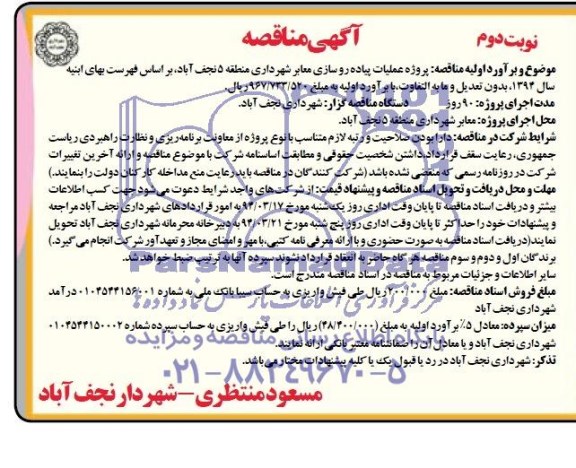 آگهی مناقصه
نوبت دوم
موضوع و برآورد اولیه مناقصه: پروژه عملیات پیاده رو سازی معابر شهرداری منطقه ۵ نجف آباد، بر اساس فهرست بهای ابنیه
سال ۱۳۹۴، بدون تعدیل و مابه التفاوت، با برآورد اولیه به مبلغ ۹۶۷/۷۳۳/۵۲۰ ریال.
مدت اجرای پروژه: ۹۰ روز دستگاه مناقصه گزار: شهرداری نجف آباد.
محل اجرای پروژه: معابر شهرداری منطقه ۵ نجف آباد.
شرایط شرکت در مناقصه: دارا بودن صلاحیت و رتبه لازم متناسب با نوع پروژه از معاونت برنامه ریزی و نظارت راهبردی ریاست
جمهوری، رعایت سقف قرارداد، داشتن شخصیت حقوقی و مطابقت اساسنامه شرکت با موضوع مناقصه و ارائه آخرین تغییرات
شرکت در روزنامه رسمی که منقضی نشده باشد (شرکت کنندگان در مناقصه باید رعایت منع مداخله کارکنان دولت را بنمایند.)
مهلت و محل دریافت و تحویل اسناد مناقصه و پیشنهاد قیمت: از شرکت های واجد شرایط دعوت می شود جهت کسب اطلاعات
بیشتر و دریافت اسناد مناقصه تا پایان وقت اداری روز یکشنبه مورخ ۹۴/۰۳/۱۷ به امور قراردادهای شهرداری نجف آباد مراجعه
و پیشنهادات خود را حداکثر تا پایان وقت اداری روز پنج شنبه مورخ ۹۴/۰۳/۲۱ به دبیرخانه محرمانه شهرداری نجف آباد تحویل
نمایند (دریافت اسناد مناقصه به صورت حضوری و با ارائه معرفی نامه کتبی، با مهر و امضای مجاز و تعهدآور شرکت انجام می گیرد.)
برندگان اول و دوم و سوم مناقصه هرگاه حاضر به انعقاد قرارداد نشوند سپرده آنها به ترتیب ضبط خواهد شد.
سایر اطلاعات و جزئیات مربوط به مناقصه در اسناد مناقصه مندرج است.
مبلغ فروش اسناد مناقصه: ۲۰۰/۰۰۰ ریال طی فیش واریزی به حساب سیبا بانک ملی به شماره ۰۱۰۴۵۴۴۱۵۶۰۰۱ درآمد
شهرداری نجف آباد
میزان سپرده: معادل ۵٪ برآورد اولیه به مبلغ (۴۸/۴۰۰/۰۰۰) ریال را طی فیش واریزی به حساب سپرده شماره ۰۱۰۴۵۴۴۱۵۰۰۰۲
شهرداری نجف آباد و یا معادل آن را ضمانتنامه معتبر بانکی ارائه نمایند.
تذکر: شهرداری نجف آباد در رد یا قبول یک یا کلیه پیشنهادات مختار می باشد.
مسعود منتظری - شهردار نجف آباد
ParsNamadData
۰۲۱-۸۸۳۴۹۶۷۰-۵